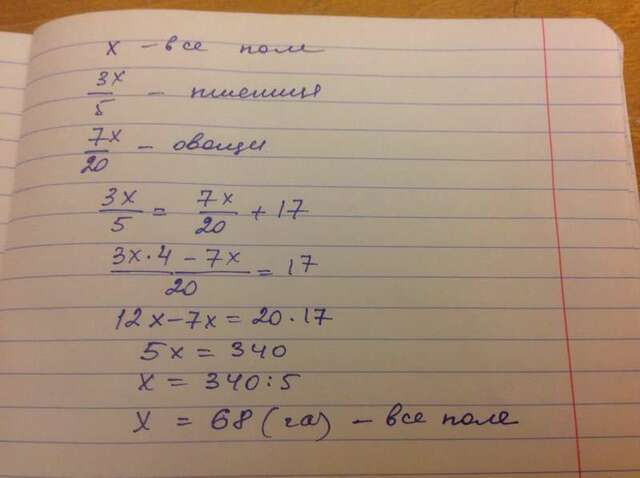 x – все поле
3x/5 – пшеница
7x/20 – овощи
3x/5 = 7x/20 + 17
3x·4 – 7x/20 = 17
12x – 7x = 20·17
5x = 340
x = 340:5
x = 68 (га) – все поле